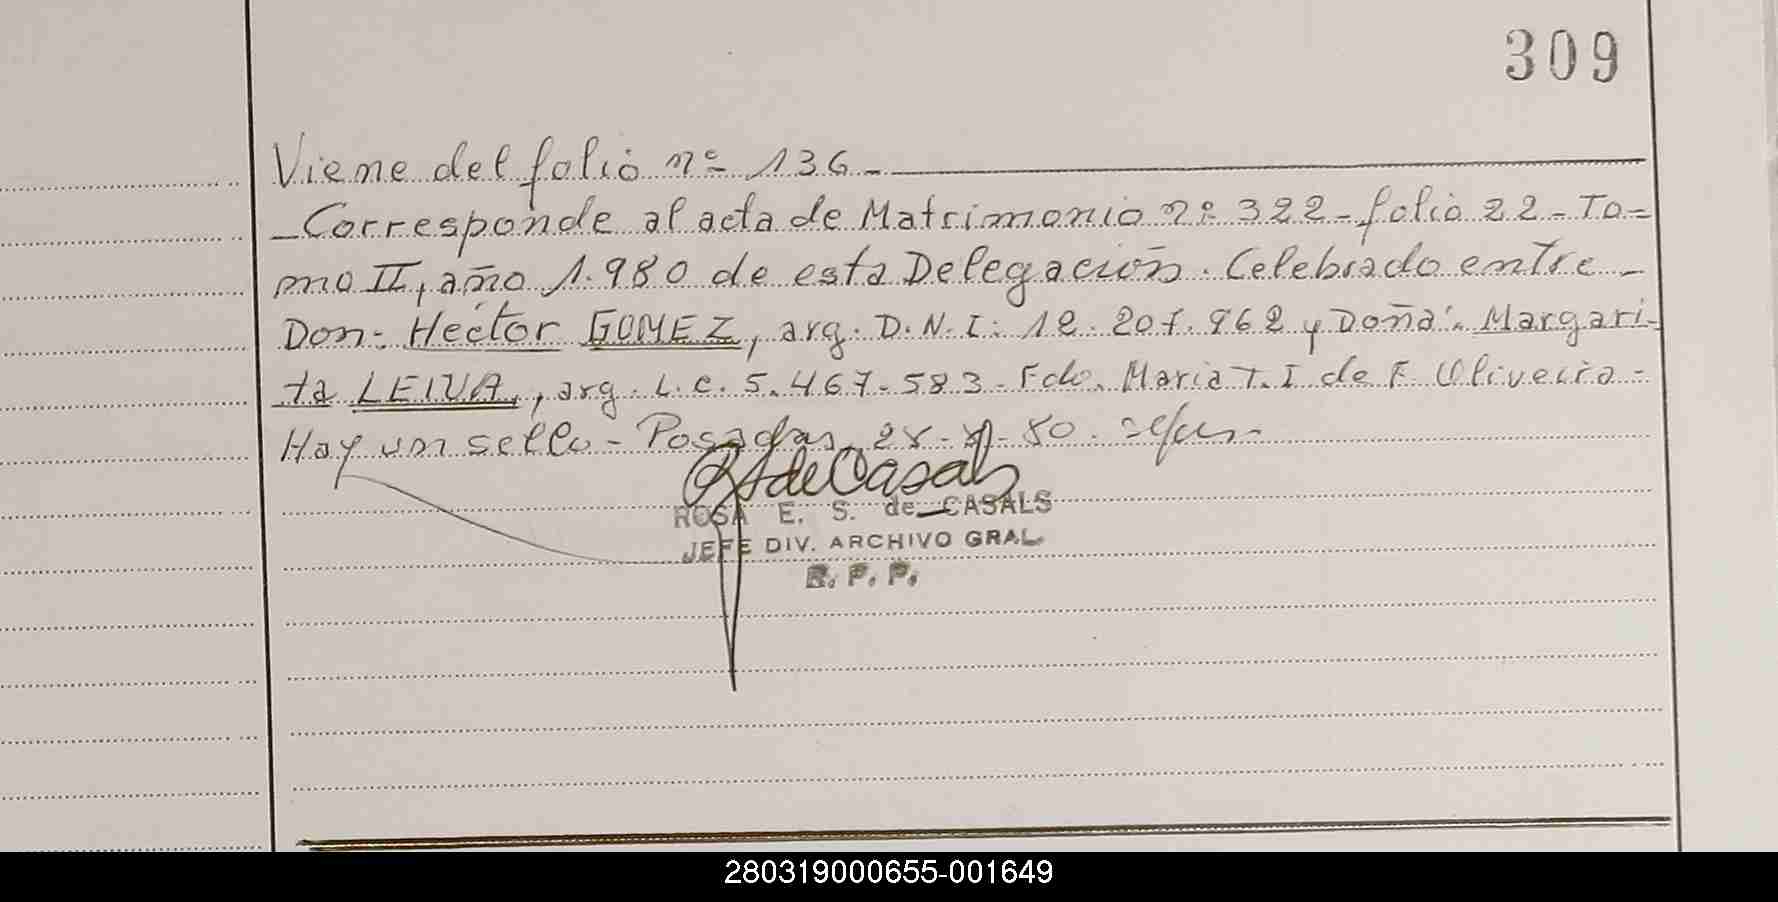 309
Viene del folio nº 136 -
- Corresponde al acta de Matrimonio nº 322 - folio 22 - To-
mo II, año 1.980 de esta Delegación. Celebrado entre -
Don: Hector GOMEZ, arg. D.N.I: 12.207.962 y Doña: Margari-
ta LEIVA, arg. L.C. 5.467.583 - Fdo. Maria T. I de F. Oliveira -
Hay un sello - Posadas,
R S de Casals
ROSA E. S. de CASALS
JEFE DIV. ARCHIVO GRAL.
R. P. P.
280319000655-001649